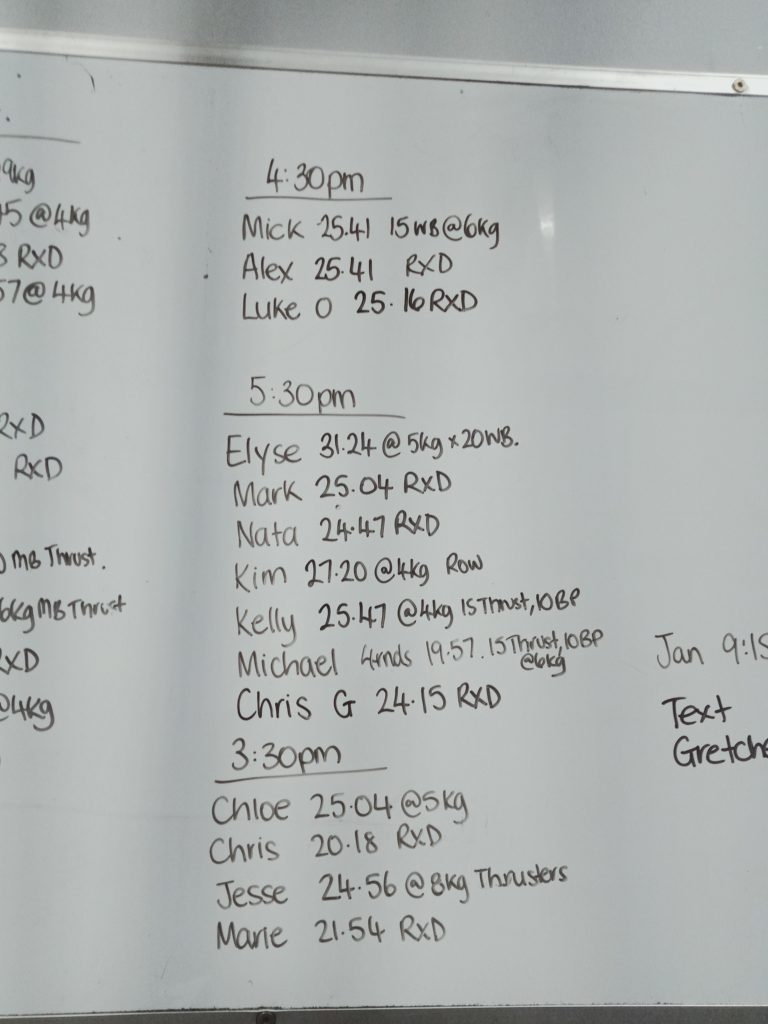 9kg
15 @4kg
3 RXD
57@4kg
RXD
RXD
MB Thrust.
6kg MB Thrust
RXD
@4kg
4:30pm
Mick 25.41 15WB@6kg
Alex 25.41 RXD
Luke O 25.16 RXD
5:30pm
Elyse 31.24 @5kg x 20WB.
Mark 25.04 RXD
Nata 24.47 RXD
Kim 27.20 @4kg Row
Kelly 25.47 @4kg 15 Thrust, 10BP
Michael 4rnds 19.57. 15 Thrust, 10BP
@6kg
Chris G 24.15 RXD
3:30pm
Chloe 25.04 @5kg
Chris 20.18 RXD
Jesse 24.56 @8kg Thrusters
Marie 21.54 RXD
Jan 9:15
Text
Gretche